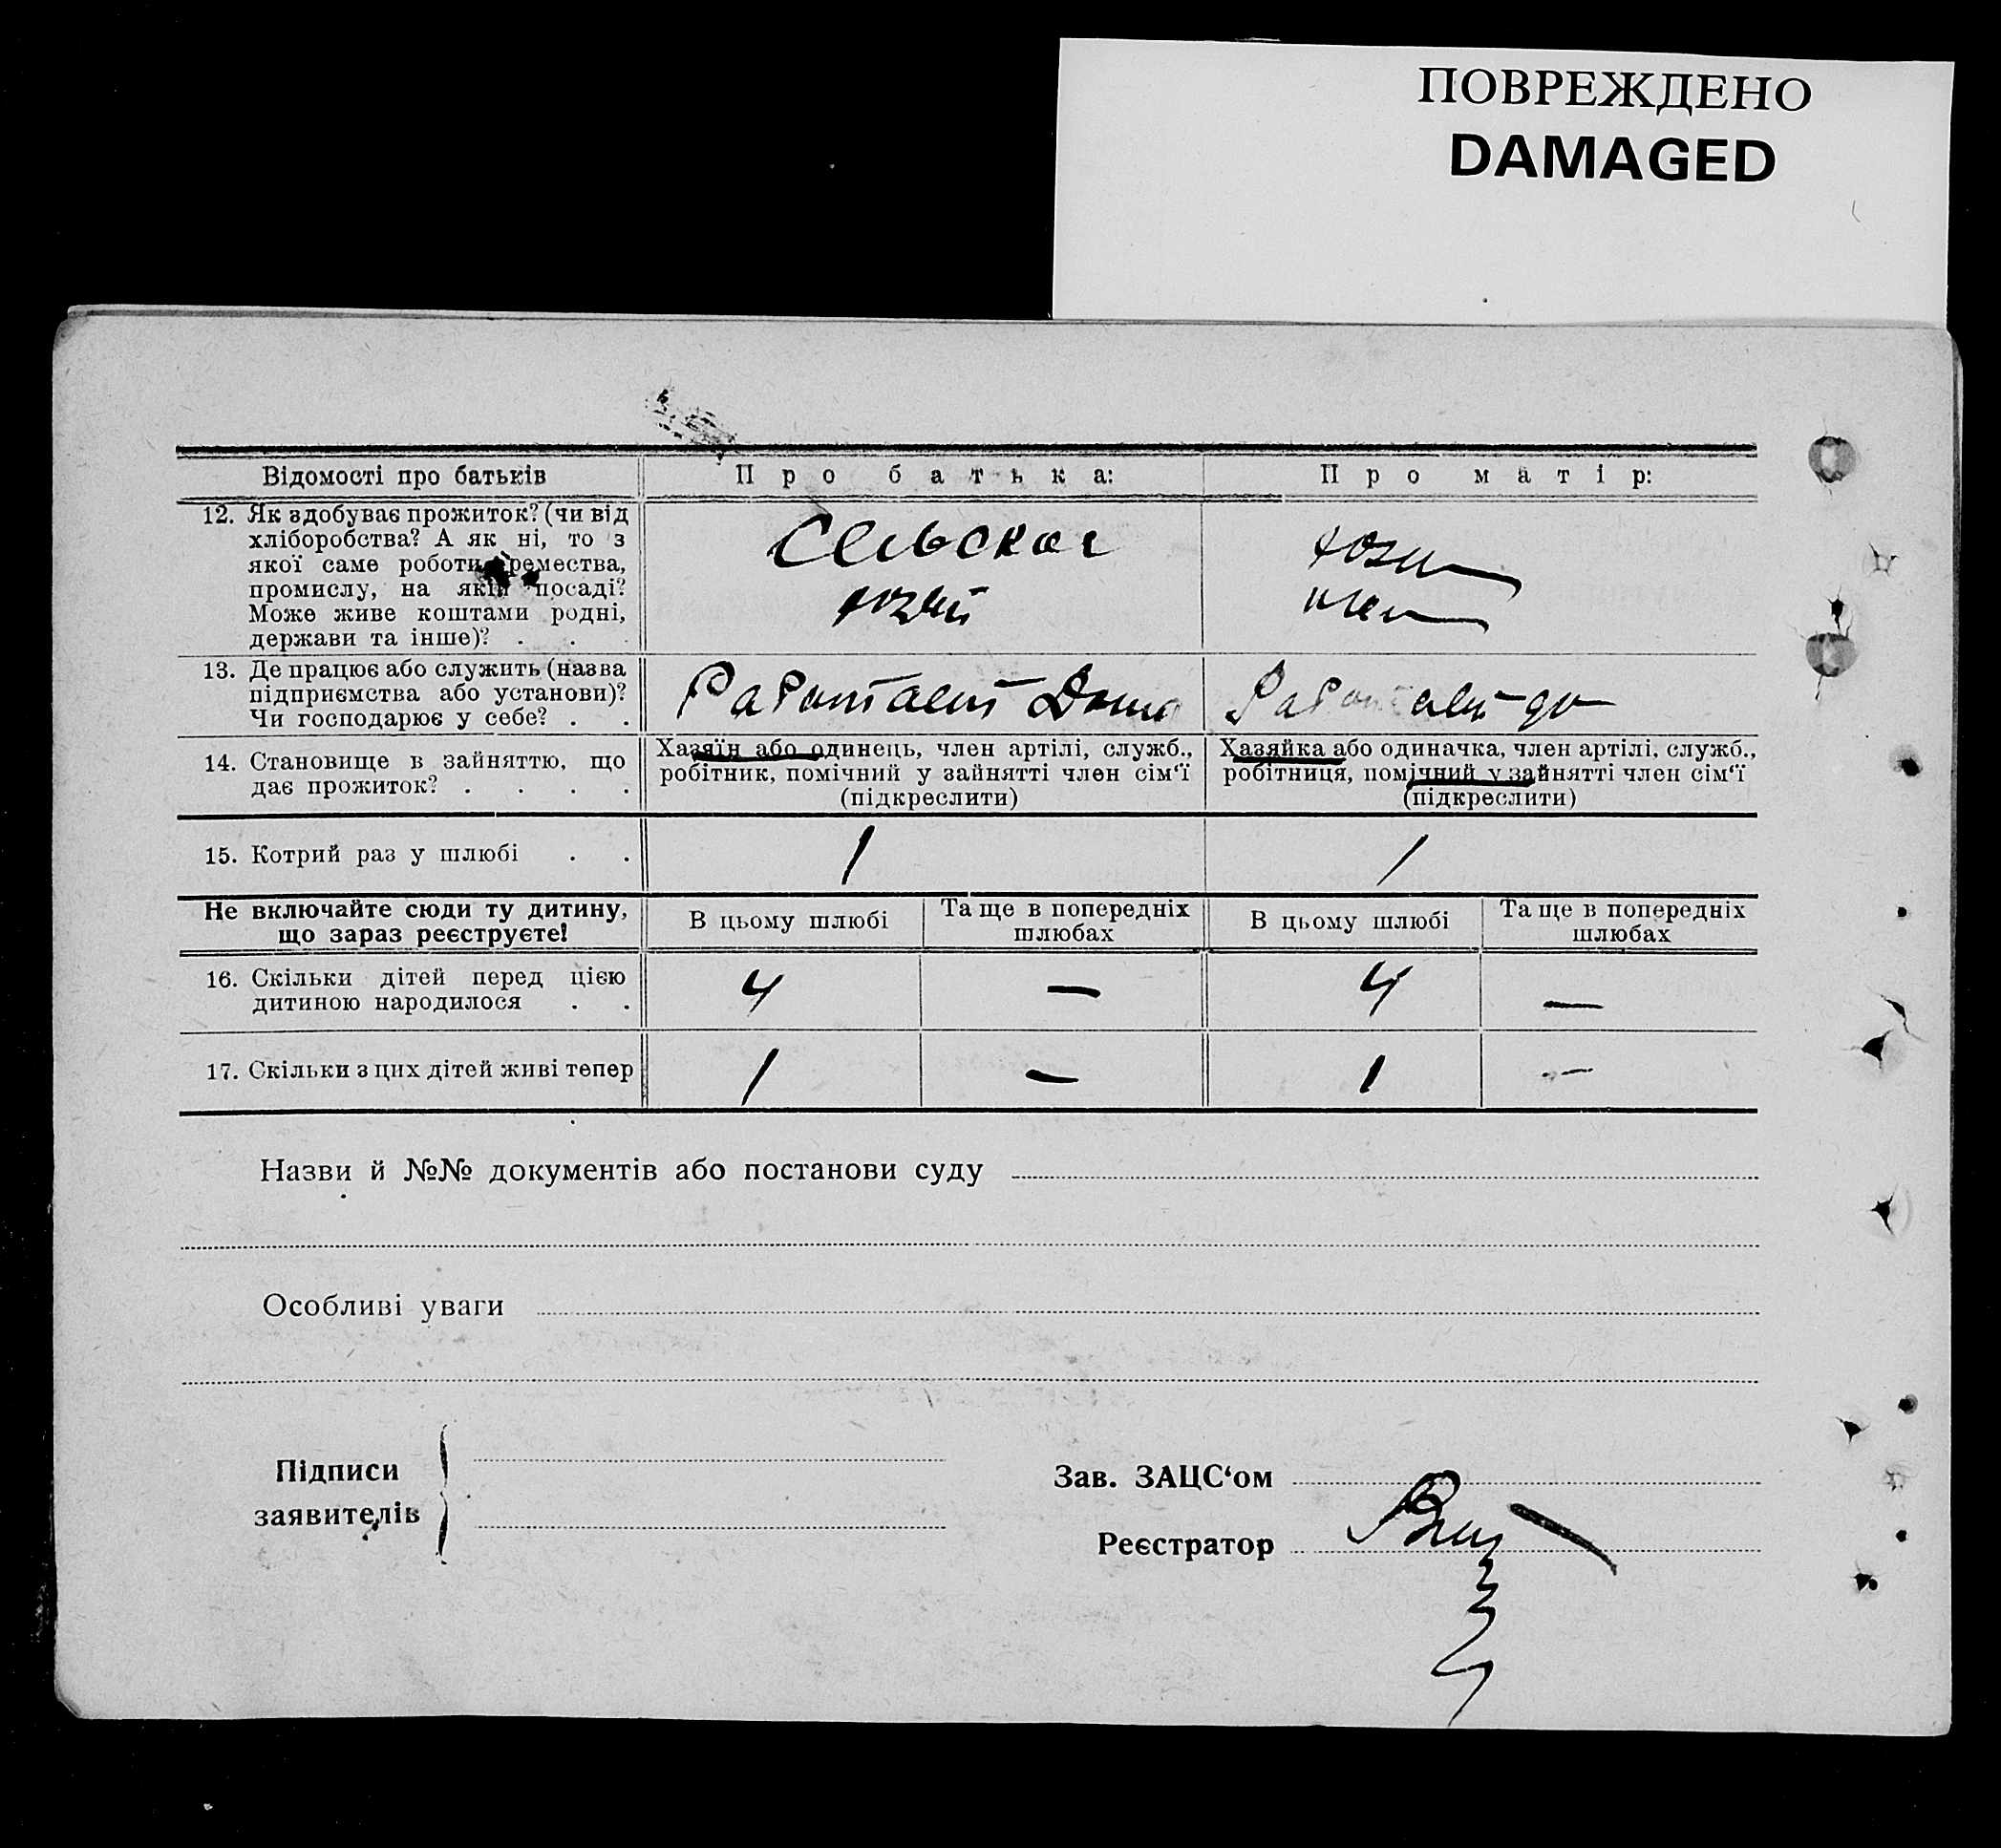 ПОВРЕЖДЕНО
DAMAGED
Відомості про батьків
Про батька:
Про матір:
12. Як здобуває прожиток? (чи від
хліборобства? А як ні, то з
якої саме роботи, ремества,
промислу, на якій посаді?
Може живе коштами родні,
держави та інше)? . .
Сельское
хозяй
хозяй
13. Де працює або служить (назва
підприємства або установи)?
Чи господарює у себе? . .
Работает Дома
Работает до
14. Становище в зайняттю, що
дає прожиток? . . . .
Хазяїн або одинець, член артілі, служб.,
робітник, помічний у зайнятті член сім‘ї
(підкреслити)
Хазяйка або одиначка, член артілі, служб.,
робітниця, помічний у зайнятті член сім‘ї
(підкреслити)
15. Котрий раз у шлюбі . .
1
1
Не включайте сюди ту дитину,
що зараз реєструєте!
В цьому шлюбі
Та ще в попередніх
шлюбах
В цьому шлюбі
Та ще в попередніх
шлюбах
16. Скільки дітей перед цією
дитиною народилося . .
4
—
4
—
17. Скільки з цих дітей живі тепер
1
—
1
—
Назви й №№ документів або постанови суду
Особливі уваги
Підписи
заявителів
Зав. ЗАЦС‘ом
Реєстратор